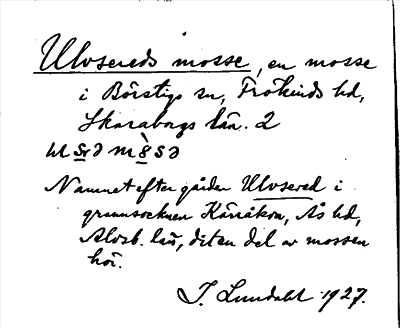 Ulvsereds mosse, en mosse
i Börstigs sn, Frökinds hd,
Skaraborgs län. 2
Namnet efter gården Ulvsered i
grannsocknen Kärråkra, Ås hd,
Älvsb. län, dit en del av mossen
hör.
J. Lundahl 1927.